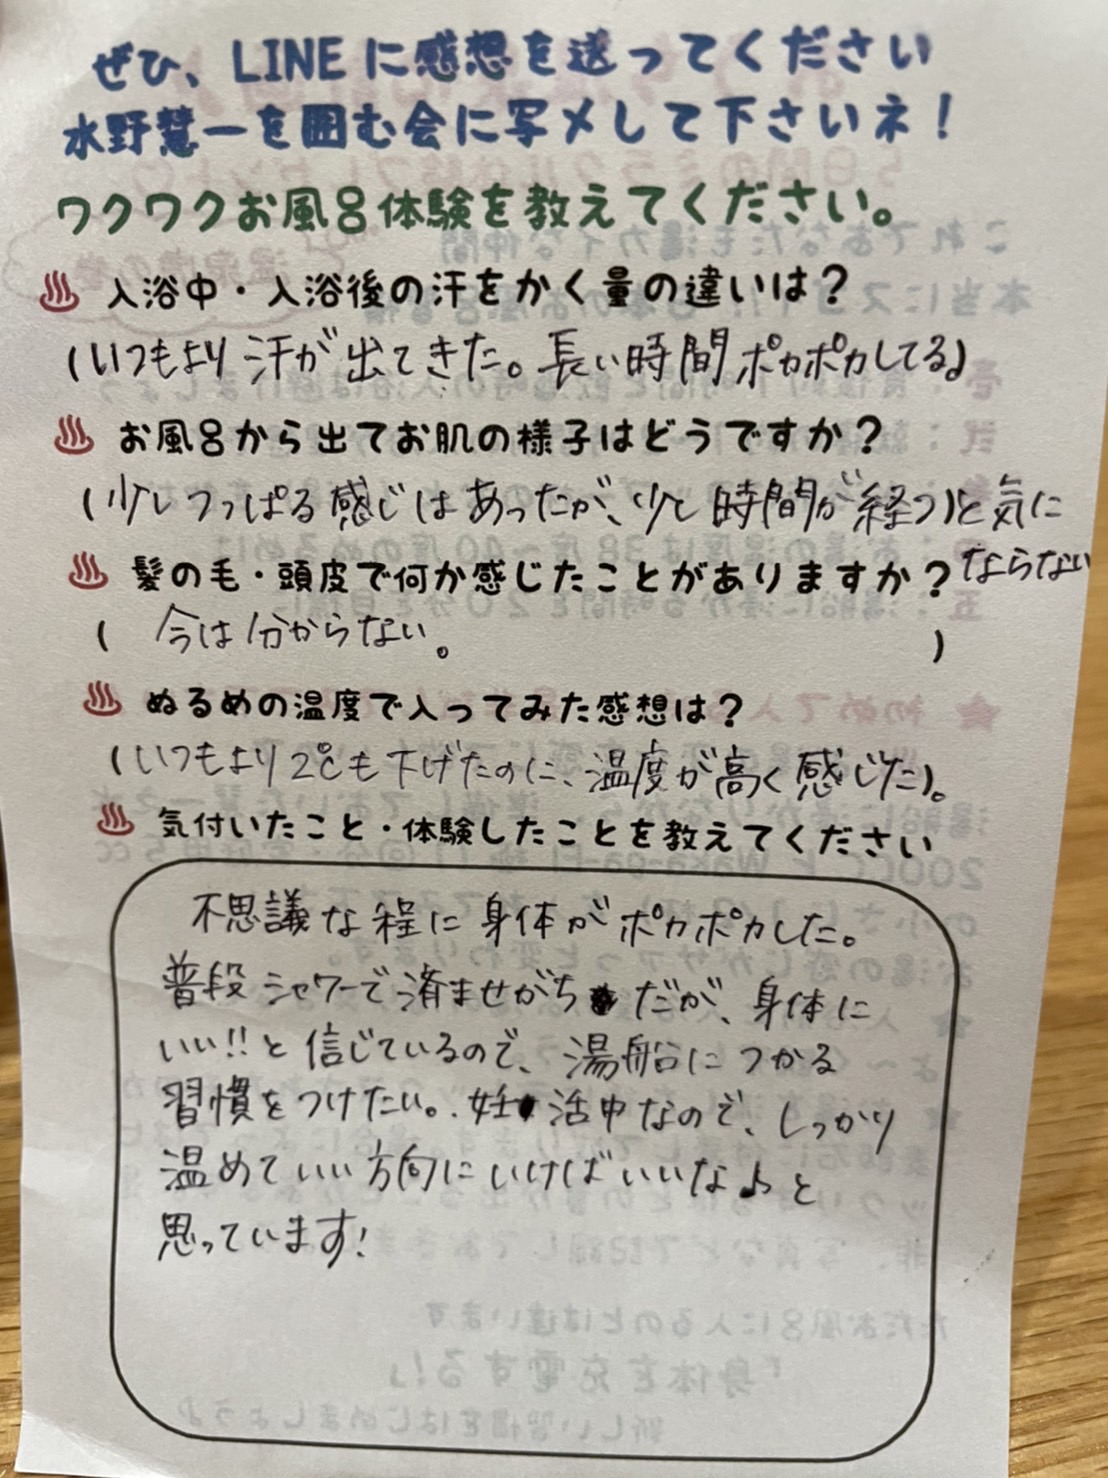 ぜひ、LINEに感想を送ってください
水野慧一を囲む会に写メして下さいネ！
ワクワクお風呂体験を教えてください。
♨ 入浴中・入浴後の汗をかく量の違いは？
(いつもより汗が出てきた。長い時間ポカポカしてる)
♨ お風呂から出てお肌の様子はどうですか？
(少しつっぱる感じはあったが、少し時間が経つと気に
ならない
♨ 髪の毛・頭皮で何か感じたことがありますか？
( 今は分からない。 )
♨ ぬるめの温度で入ってみた感想は？
(いつもより2℃も下げたのに、温度が高く感じた)。
♨ 気付いたこと・体験したことを教えてください
不思議な程に身体がポカポカした。
普段シャワーで済ませがちだが、身体に
いい!!と信じているので、湯船につかる
習慣をつけたい。妊活中なので、しっかり
温めていい方向にいけばいいな♪と
思っています!